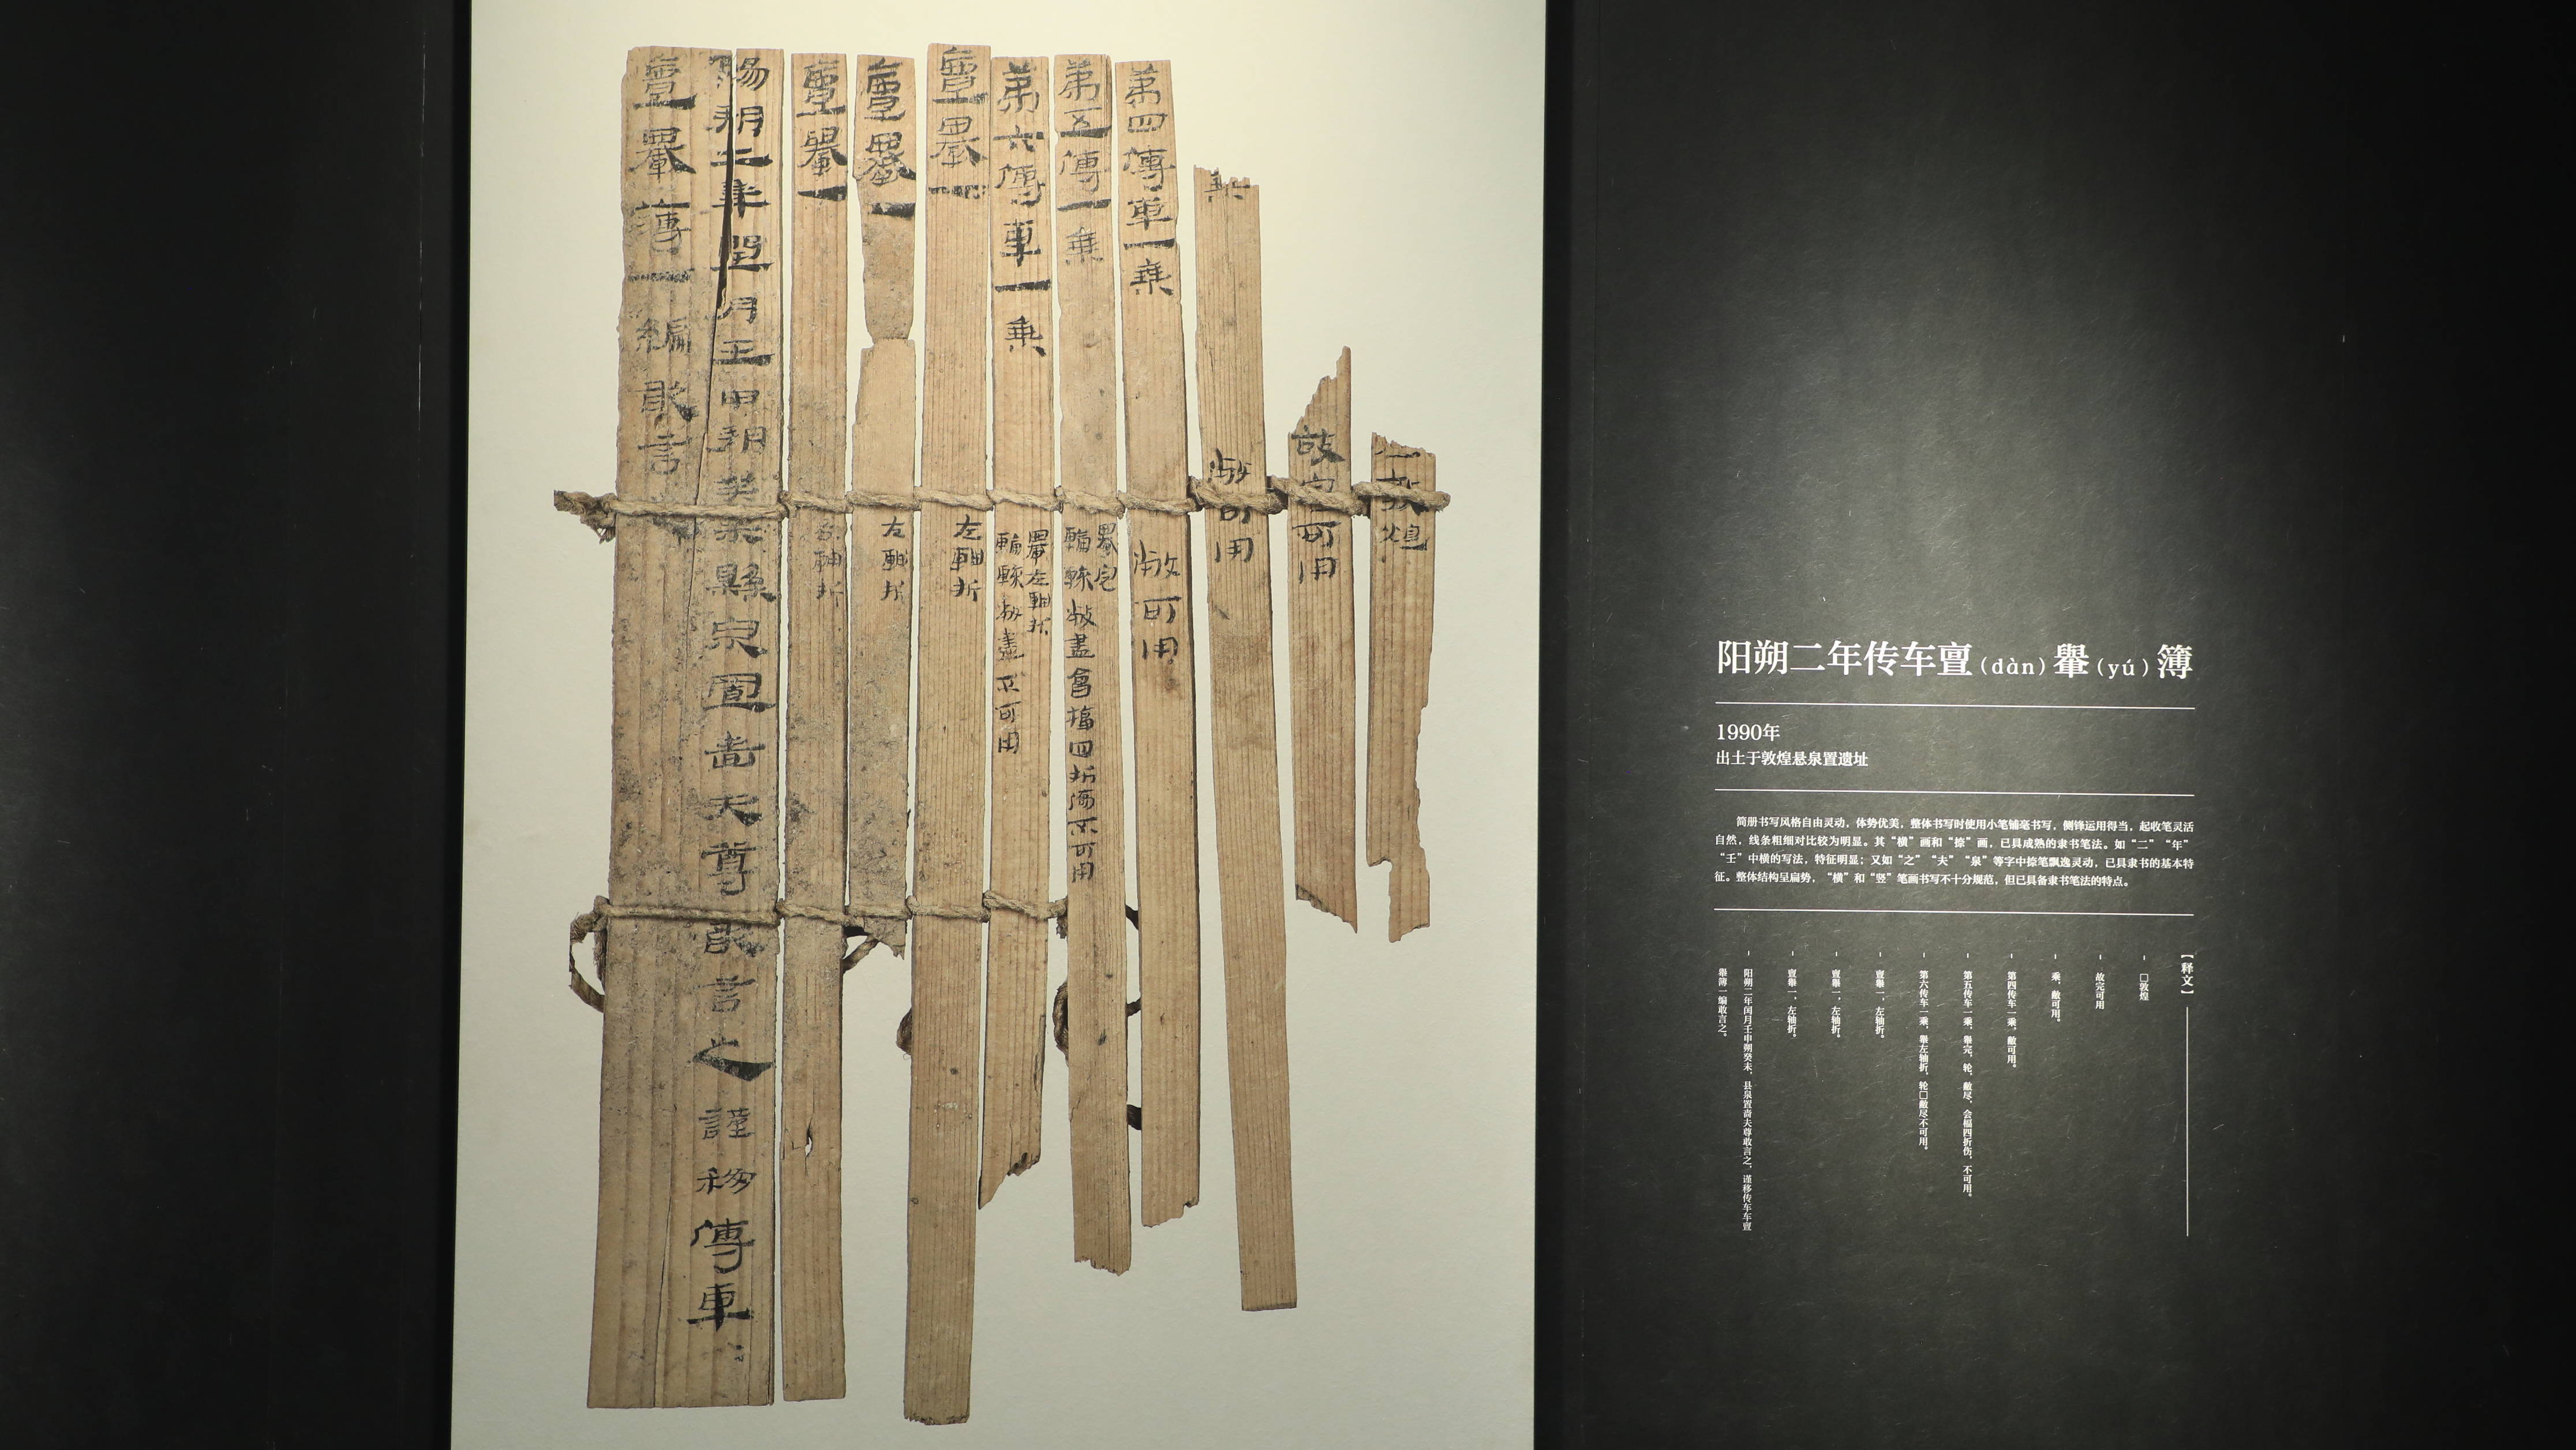 𤰈轝簿一編敢言
陽朔二年閏月壬申朔癸未縣泉置嗇夫尊敢言之謹移傳車
亶轝一
左軸折
亶轝一
左軸折
亶轝一
左軸折
第六傳車一乘
轝左軸折
不可用
第五傳一乘
轝完
敝盡會楅四折傷不可用
第四傳車一乘
敝可用
乘
敝可用
故完可用
敦煌
阳朔二年传车亶(dàn)轝(yú)簿
1990年
出土于敦煌悬泉置遗址
简册书写风格自由灵动，体势优美，整体书写时使用小笔铺毫书写，侧锋运用得当，起收笔灵活
自然，线条粗细对比较为明显。其“横”画和“捺”画，已具成熟的隶书笔法。如“二”“年”
“壬”中横的写法，特征明显；又如“之”“夫”“泉”等字中捺笔飘逸灵动，已具隶书的基本特
征。整体结构呈扁势，“横”和“竖”笔画书写不十分规范，但已具备隶书笔法的特点。
【释文】
- □敦煌
- 故完可用
- 乘，敝可用。
- 第四传车一乘，敝可用。
- 第五传车一乘，轝完，轮，敝尽，会楅四折伤，不可用。
- 第六传车一乘，轝左轴折，轮□敝尽不可用。
- 亶轝一，左轴折。
- 亶轝一，左轴折。
- 亶轝一，左轴折。
- 阳朔二年闰月壬申朔癸未，县泉置啬夫尊敢言之，谨移传车车亶
轝簿一编敢言之。